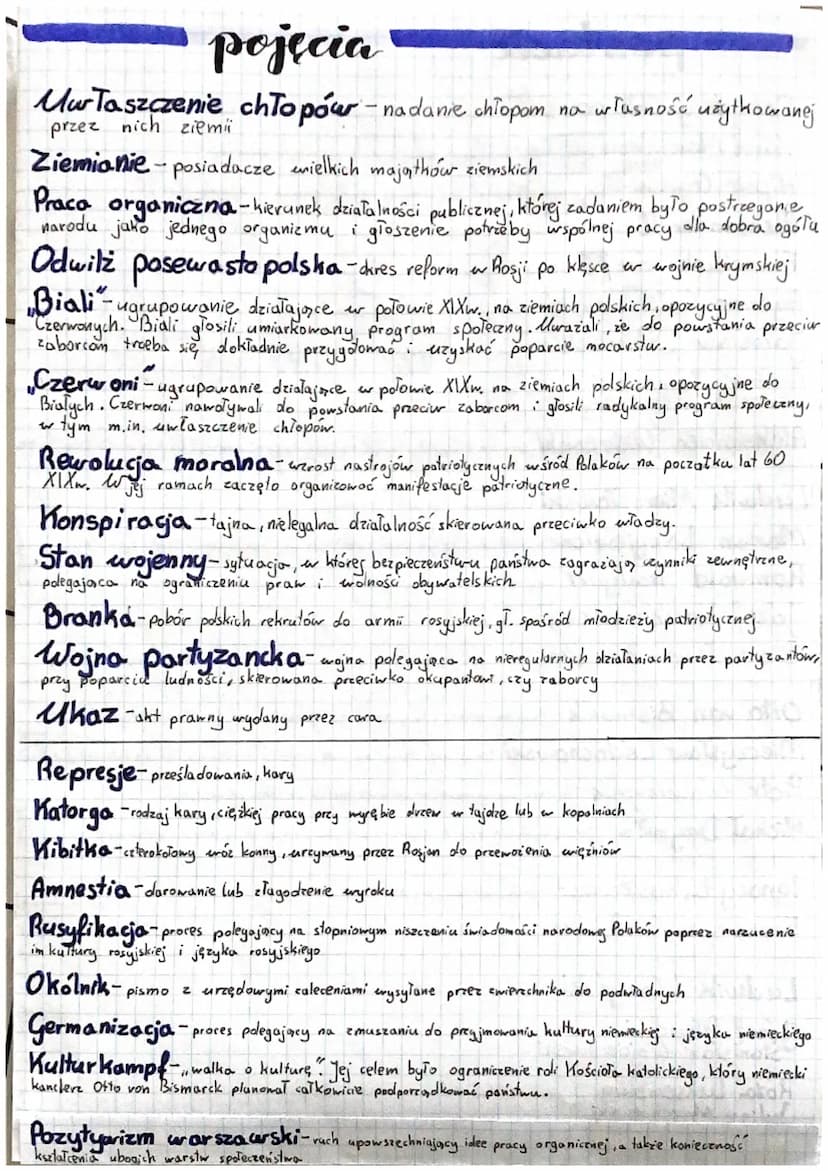 pojęcia
Uwłaszczenie chłopów - nadanie chłopom na własność użytkowanej
przez nich ziemii
Ziemianie - posiadacze wielkich majątków ziemskich
Praca organiczna - kierunek działalności publicznej, której zadaniem było postrzeganie
narodu jako jednego organizmu i głoszenie potrzeby wspólnej pracy dla dobra ogółu
Odwilż posewastopolska - okres reform w Rosji po klęsce w wojnie krymskiej
„Biali” - ugrupowanie działające w połowie XIXw., na ziemiach polskich, opozycyjne do
Czerwonych. Biali głosili umiarkowany program społeczny. Uważali, że do powstania przeciw
zaborcom trzeba się dokładnie przygotować i uzyskać poparcie mocarstw.
„Czerwoni” - ugrupowanie działające w połowie XIXw. na ziemiach polskich, opozycyjne do
Białych. Czerwoni nawoływali do powstania przeciw zaborcom i głosili radykalny program społeczny,
w tym m.in. uwłaszczenie chłopów.
Rewolucja moralna - wzrost nastrojów patriotycznych wśród Polaków na początku lat 60
XIXw. W jej ramach zaczęto organizować manifestacje patriotyczne.
Konspiracja - tajna, nielegalna działalność skierowana przeciwko władzy.
Stan wojenny - sytuacja, w której bezpieczeństwu państwa zagrażają czynniki zewnętrzne,
polegająca na ograniczeniu praw i wolności obywatelskich
Branka - pobór polskich rekrutów do armii rosyjskiej, gł. spośród młodzieży patriotycznej
Wojna partyzancka - wojna polegająca na nieregularnych działaniach przez partyzantów,
przy poparciu ludności, skierowana przeciwko okupantowi, czy zaborcy
Ukaz - akt prawny wydany przez cara
Represje - prześladowania, kary
Katorga - rodzaj kary, ciężkiej pracy przy wyrębie drzew w tajdze lub w kopalniach
Kibitka - czterokołowy wóz konny, używany przez Rosjan do przewożenia więźniów
Amnestia - darowanie lub złagodzenie wyroku
Rusyfikacja - proces polegający na stopniowym niszczeniu świadomości narodowej Polaków poprzez narzucenie
im kultury rosyjskiej i języka rosyjskiego
Okólnik - pismo z urzędowymi zaleceniami wysyłane przez zwierzchnika do podwładnych
Germanizacja - proces polegający na zmuszaniu do przyjmowania kultury niemieckiej i języka niemieckiego
Kulturkampf - „walka o kulturę”. Jej celem było ograniczenie roli Kościoła katolickiego, który niemiecki
kanclerz Otto von Bismarck planował całkowicie podporządkować państwu.
Pozytywizm warszawski - ruch upowszechniający idee pracy organicznej, a także konieczność
kształcenia ubogich warstw społeczeństwa